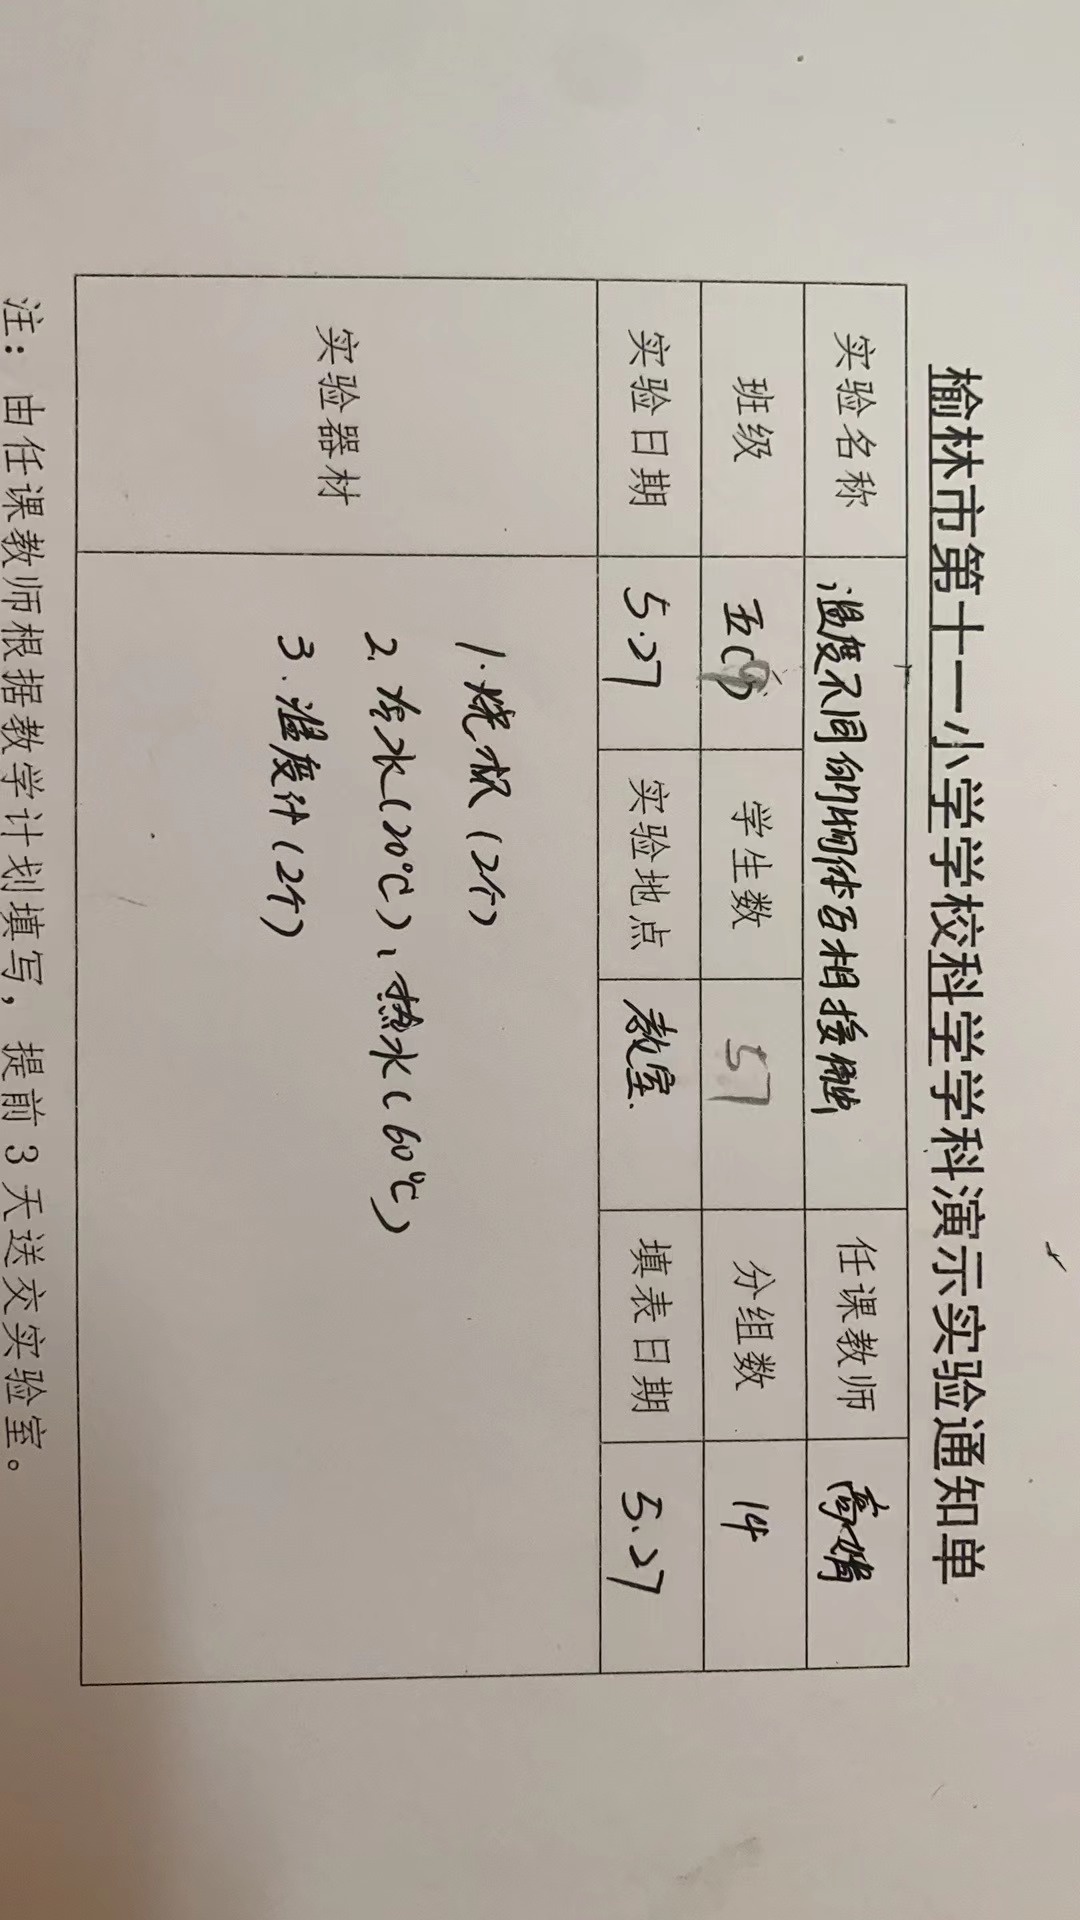 榆林市第十一小学学校科学学科演示实验通知单
实验名称 温度不同的物体互相接触 任课教师 高娟
班级 五(9) 学生数 57 分组数 14
实验日期 5.27 实验地点 教室 填表日期 5.27
实验器材
1.烧杯(2个)
2.冷水(20℃)、热水(60℃)
3.温度计(2个)
注：由任课教师根据教学计划填写，提前3天送交实验室。